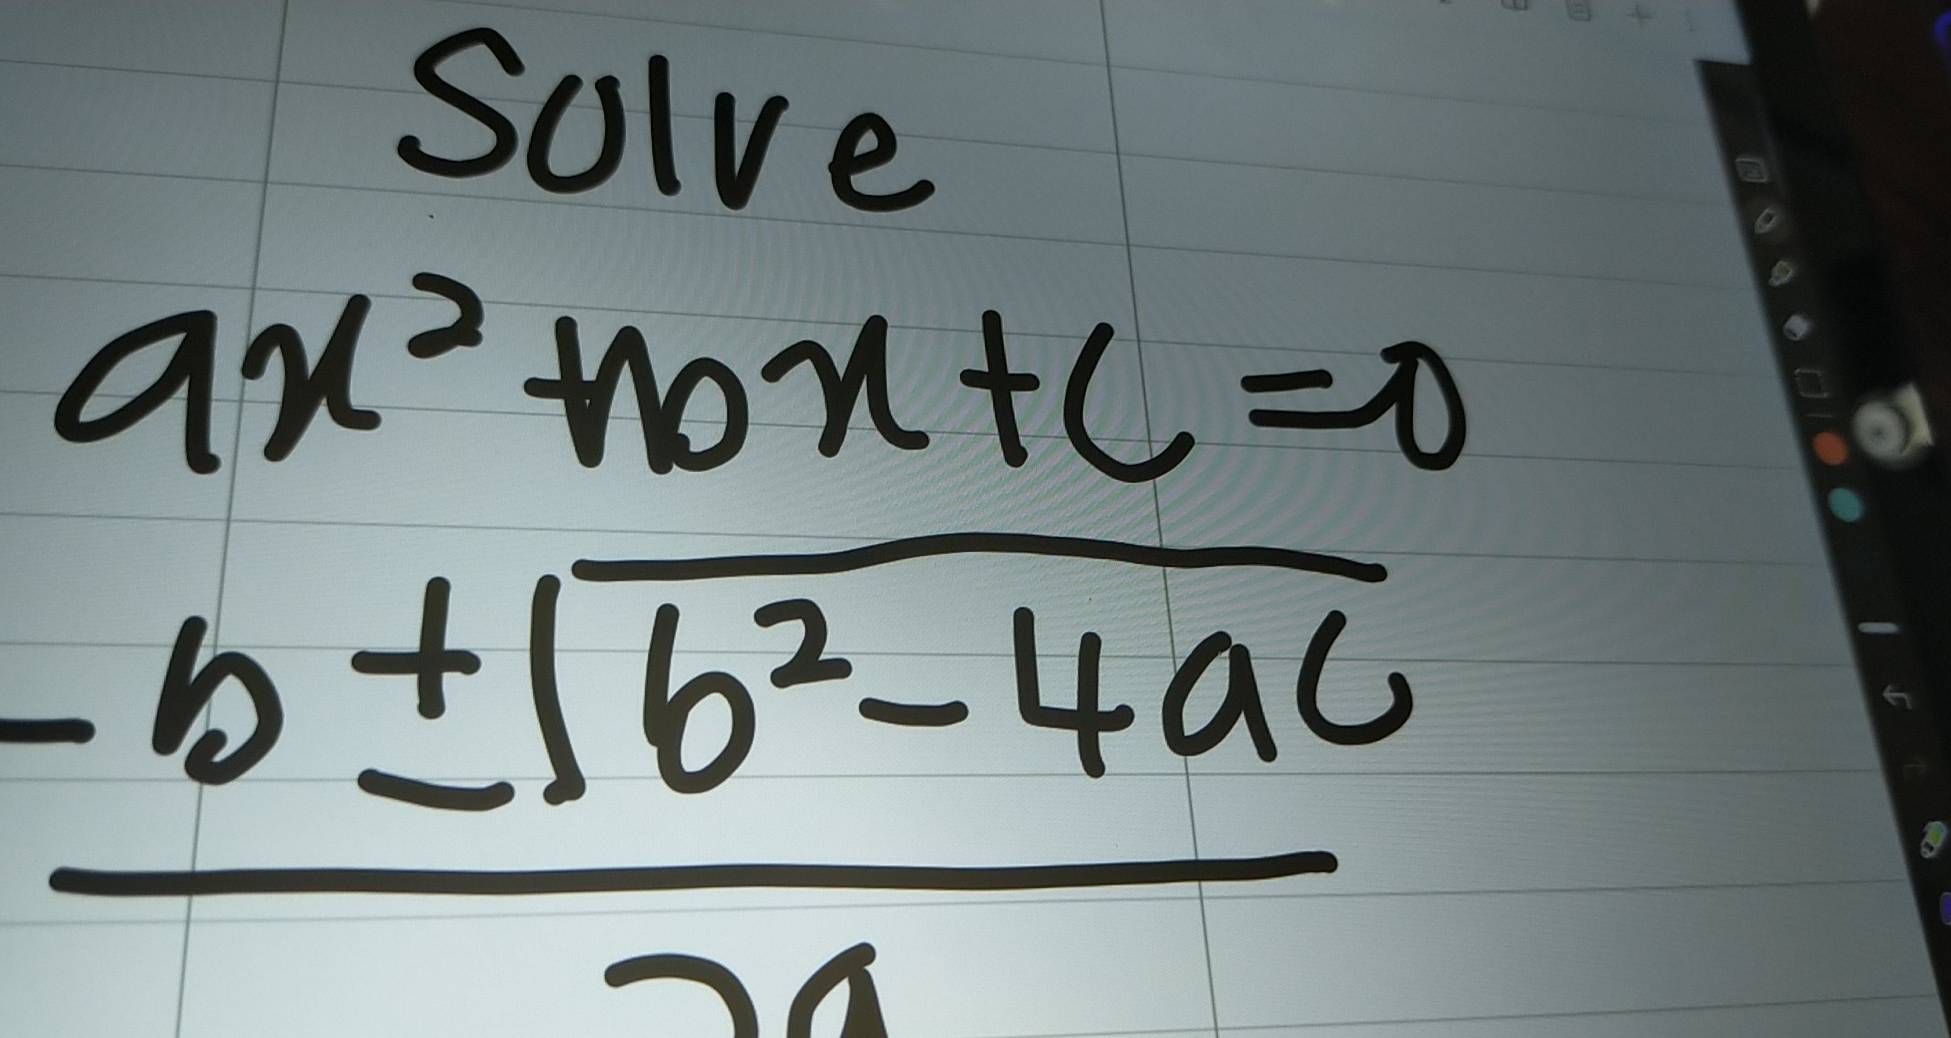 Solve
ax² + bx + c = 0
-b ± √b² - 4ac
2a